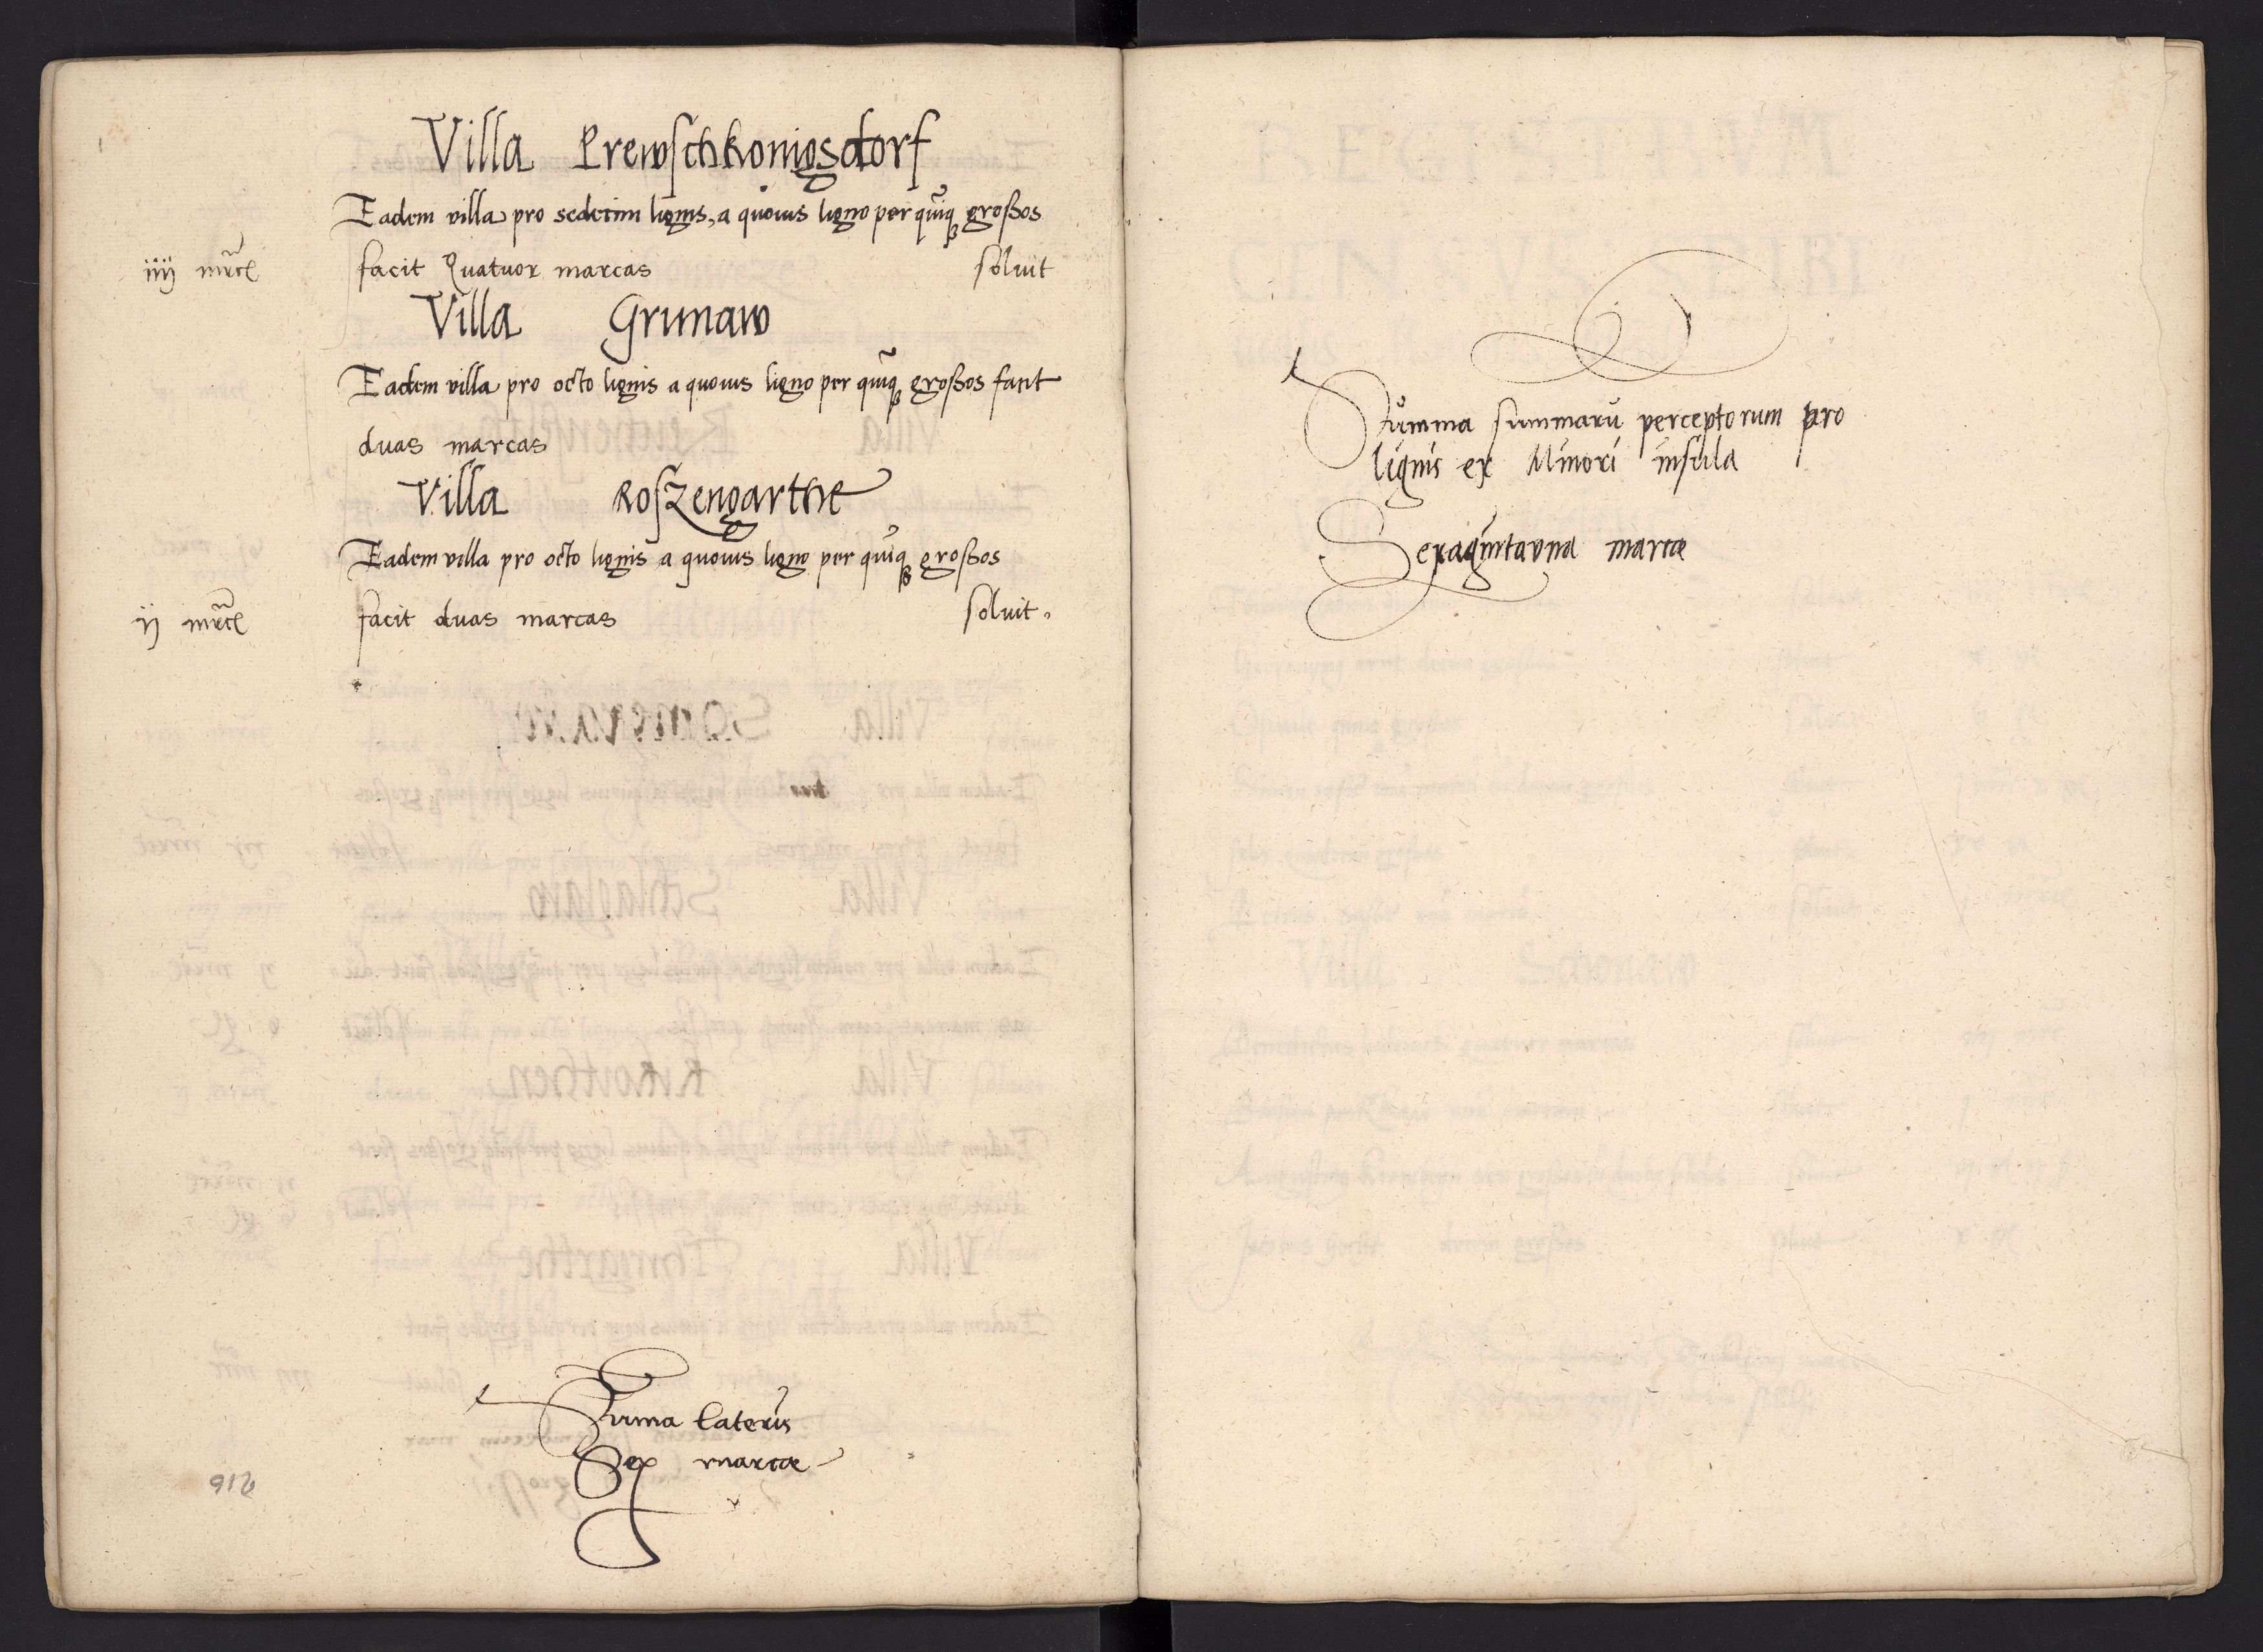 Villa Prewschkonigsdorf
Eadem villa pro sedecim lignis, a quouis ligno per quiq̃ grossos
iiij mrc̃ facit Quatuor marcas soluit
Villa Grunaw
Eadem villa pro octo lignis a quouis ligno per quiq̃ grossos facit
duas marcas
Villa Roszengarthe
Eadem villa pro octo lignis a quouis ligno per quiq̃ grossos
ij mrc̃ facit duas marcas soluit.
Suma Lateris
Sex marcae
Summa summarū perceptorum pro
lignis ex Minori insula
Sexagintavna marcae